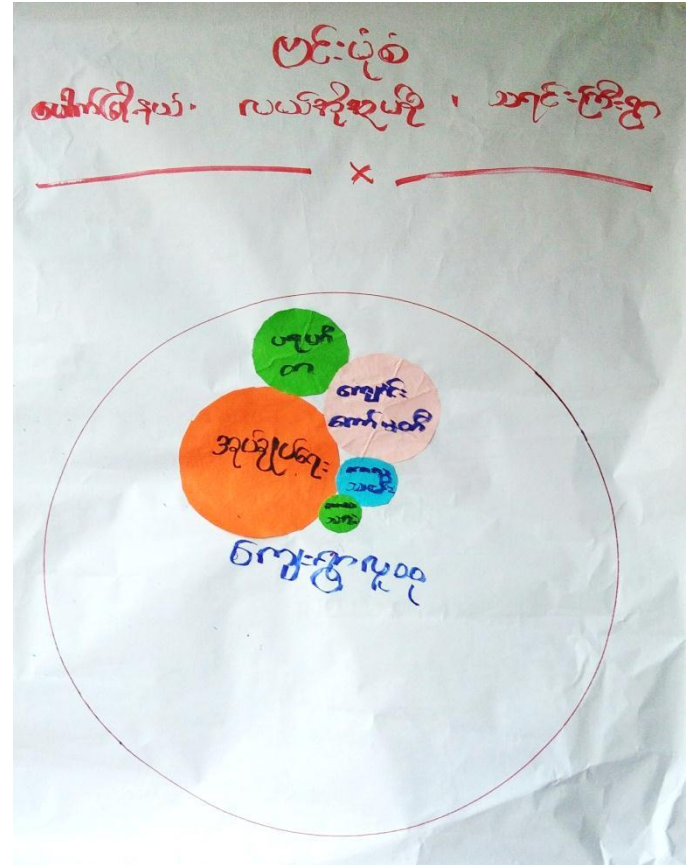 ဗင်းပုံစံ
ပေါက်မြို့နယ်၊ လယ်ကိုအုပ်စု ၊ သရင်းကြီးရွာ
x
ပရဟိ
တ
ကျောင်း
ကော်မတီ
အုပ်ချုပ်ရေး
ကျေးရွာလူထု